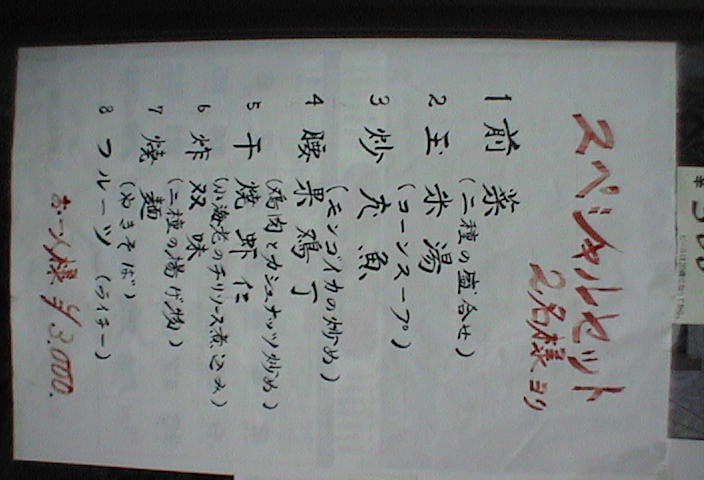 スペシャルセット
2名様ヨリ
1 前菜
(二種の盛合せ)
2 玉米湯
(コーンスープ)
3 炒大魚
(モンゴイカの炒め)
4 腰果鶏丁
(鶏肉とカシュナッツ炒め)
5 干焼虾仁
(小海老のチリソース煮込み)
6 炸双味
(二種の揚げ物)
7 焼麺
(やきそば)
8 フルーツ (ライチー)
お一人様 ¥3,000.